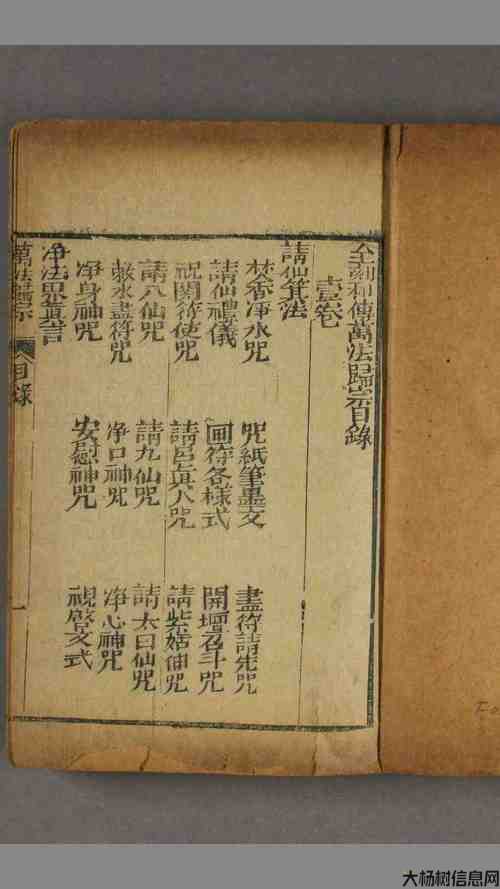 刻秘傳萬法歸宗目錄
壹卷
請仙箕法
焚香净水咒 咒紙筆墨文 畫符請先咒
請仙禮儀 画符各樣式 開壇召斗咒
祝関符使咒 請呂真人咒 請紫姑仙咒
請八仙咒 請九仙咒 請太白仙咒
敕水畫符咒 净口神咒 净心神咒
净身神咒 安慰神咒 視啓文式
净法界真言
萬法歸宗 目錄
大杨树信息网